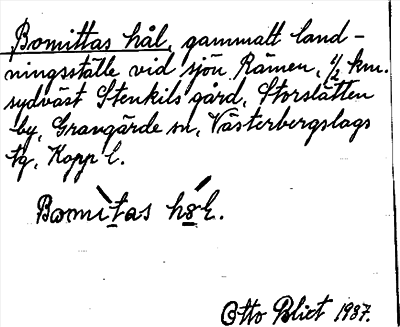 Bomittas hål, gammalt land-
ningsställe vid sjön Rämen, 1/2 km.
sydväst Stenkils gård, Storslätten
by, Grangärde sn, Västerbergslags
tg, Kopp l.
Bomitas
Otto Blixt 1937.